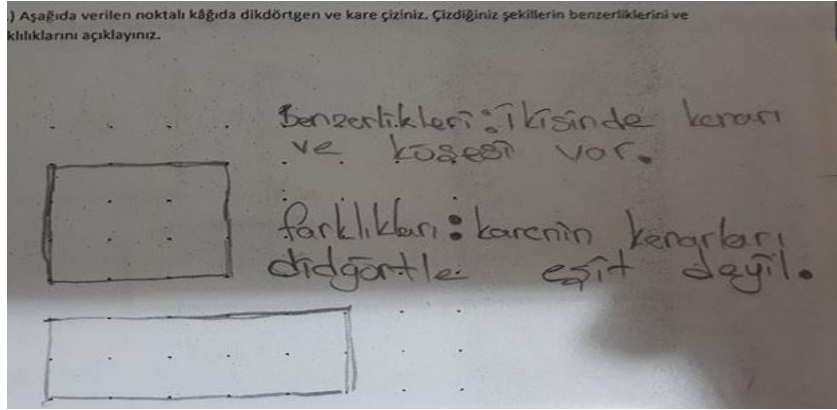 .) Aşağıda verilen noktalı kâğıda dikdörtgen ve kare çiziniz. Çizdiğiniz şekillerin benzerliklerini ve
klılıklarını açıklayınız.
Benzerlikleri: İkisinde kenarı
ve köşesi var.
farklıkları: karenin kenarları
didgörtle eşit deyil.